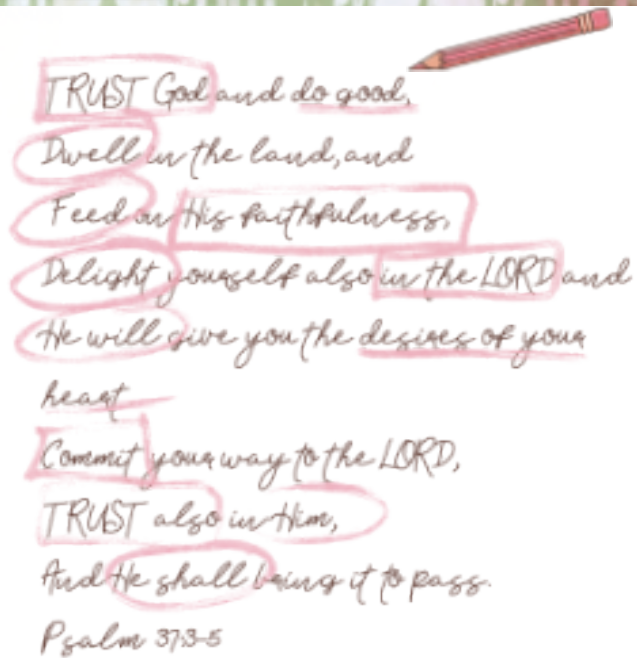 TRUST God and do good,
Dwell in the land, and
Feed on His faithfulness,
Delight yourself also in the LORD and
He will give you the desires of your
heart
Commit your way to the LORD,
TRUST also in Him,
And He shall bring it to pass.
Psalm 37:3-5